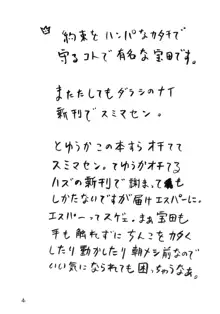 約束をハンパなカタチで
守るコトで有名な宝田です。
またたしてもダラシのナイ
新刊でスミマセン。
とゆうかこの本すらオチてて
スミマセン。てゆうかオチてる
ハズの新刊で謝まっても
しかたないですが届けエスパーに。
エスパーってスゲェ。まぁ宝田も
手も触れずにちんこをカタく
したり動かしたり朝メシ前なので
いい気になられても困っちゃうなぁ。